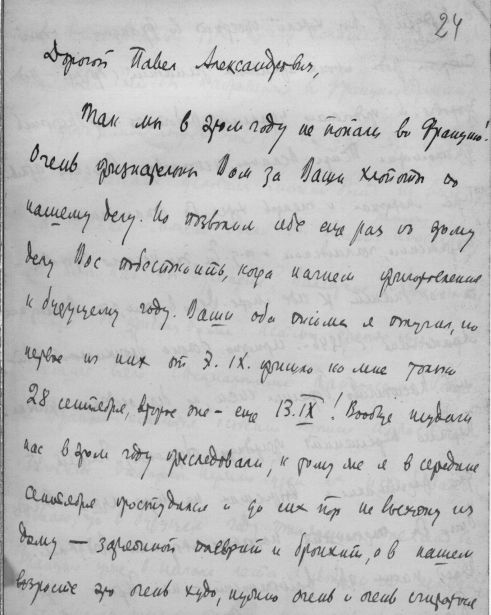 24
Дорогой Павел Александрович,
Так мы в этом году не попали во Францию!
Очень признательны Вам за Ваши хлопоты по
нашему делу. Но позволим себе еще раз по этому
делу Вас побеспокоить, когда начнем приготовления
к будущему году. Ваши оба письма я получил, но
первое из них от 7. IX. пришло ко мне только
28 сентября, второе же – еще 13.IX! Вообще неудачи
нас в этом году преследовали, к тому же я в середине
сентября простудился и до сих пор не выхожу из
дому — плеврит и бронхит, а в нашем
возрасте это очень худо, нужно очень и очень